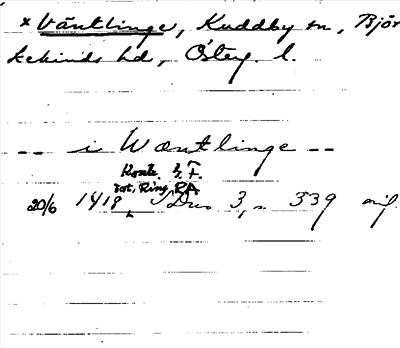 × Väntlinge, Kuddby sn, Björ
kekinds hd, Österg. l.
-- i Wæntlinge --
Konc.
rot, Ring, RA
20/6 1418, Dus 3, s. 339 mif.